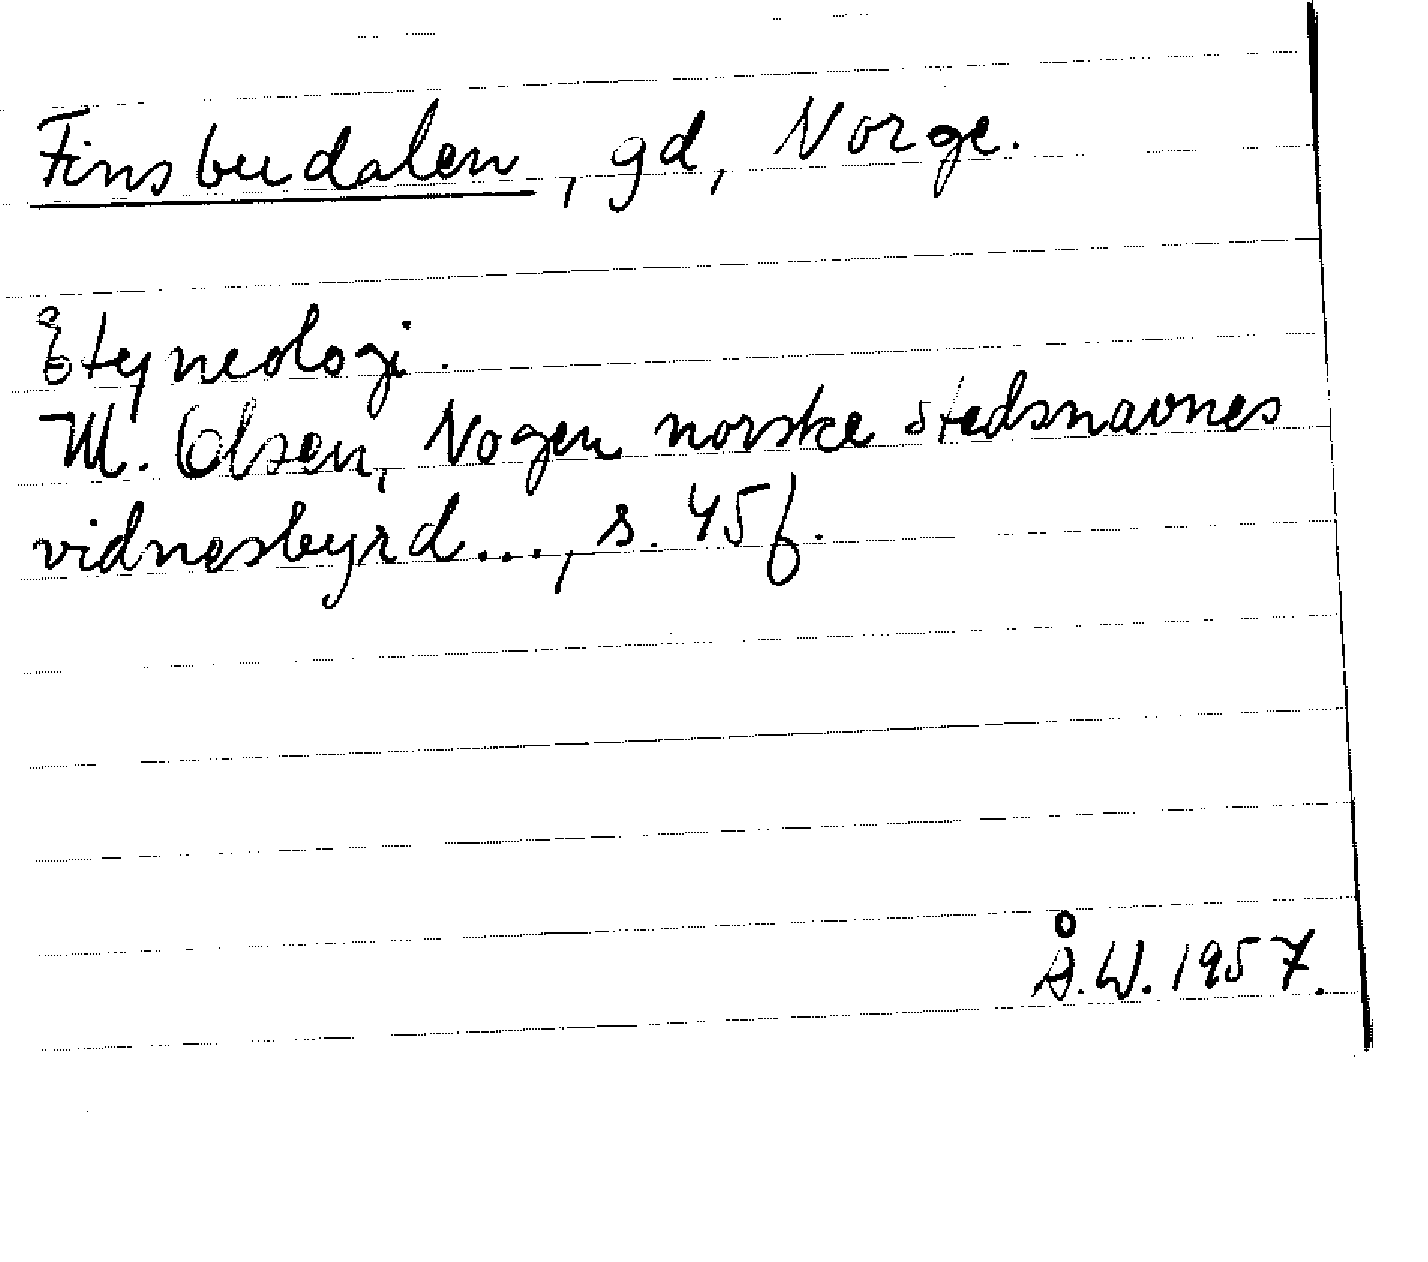 Finsbudalen, gd, Norge.
Etymologi.
M. Olsen, Nogen norske stedsnavnes
vidnesbyrd..., s. 45f.
Å.W. 1957.